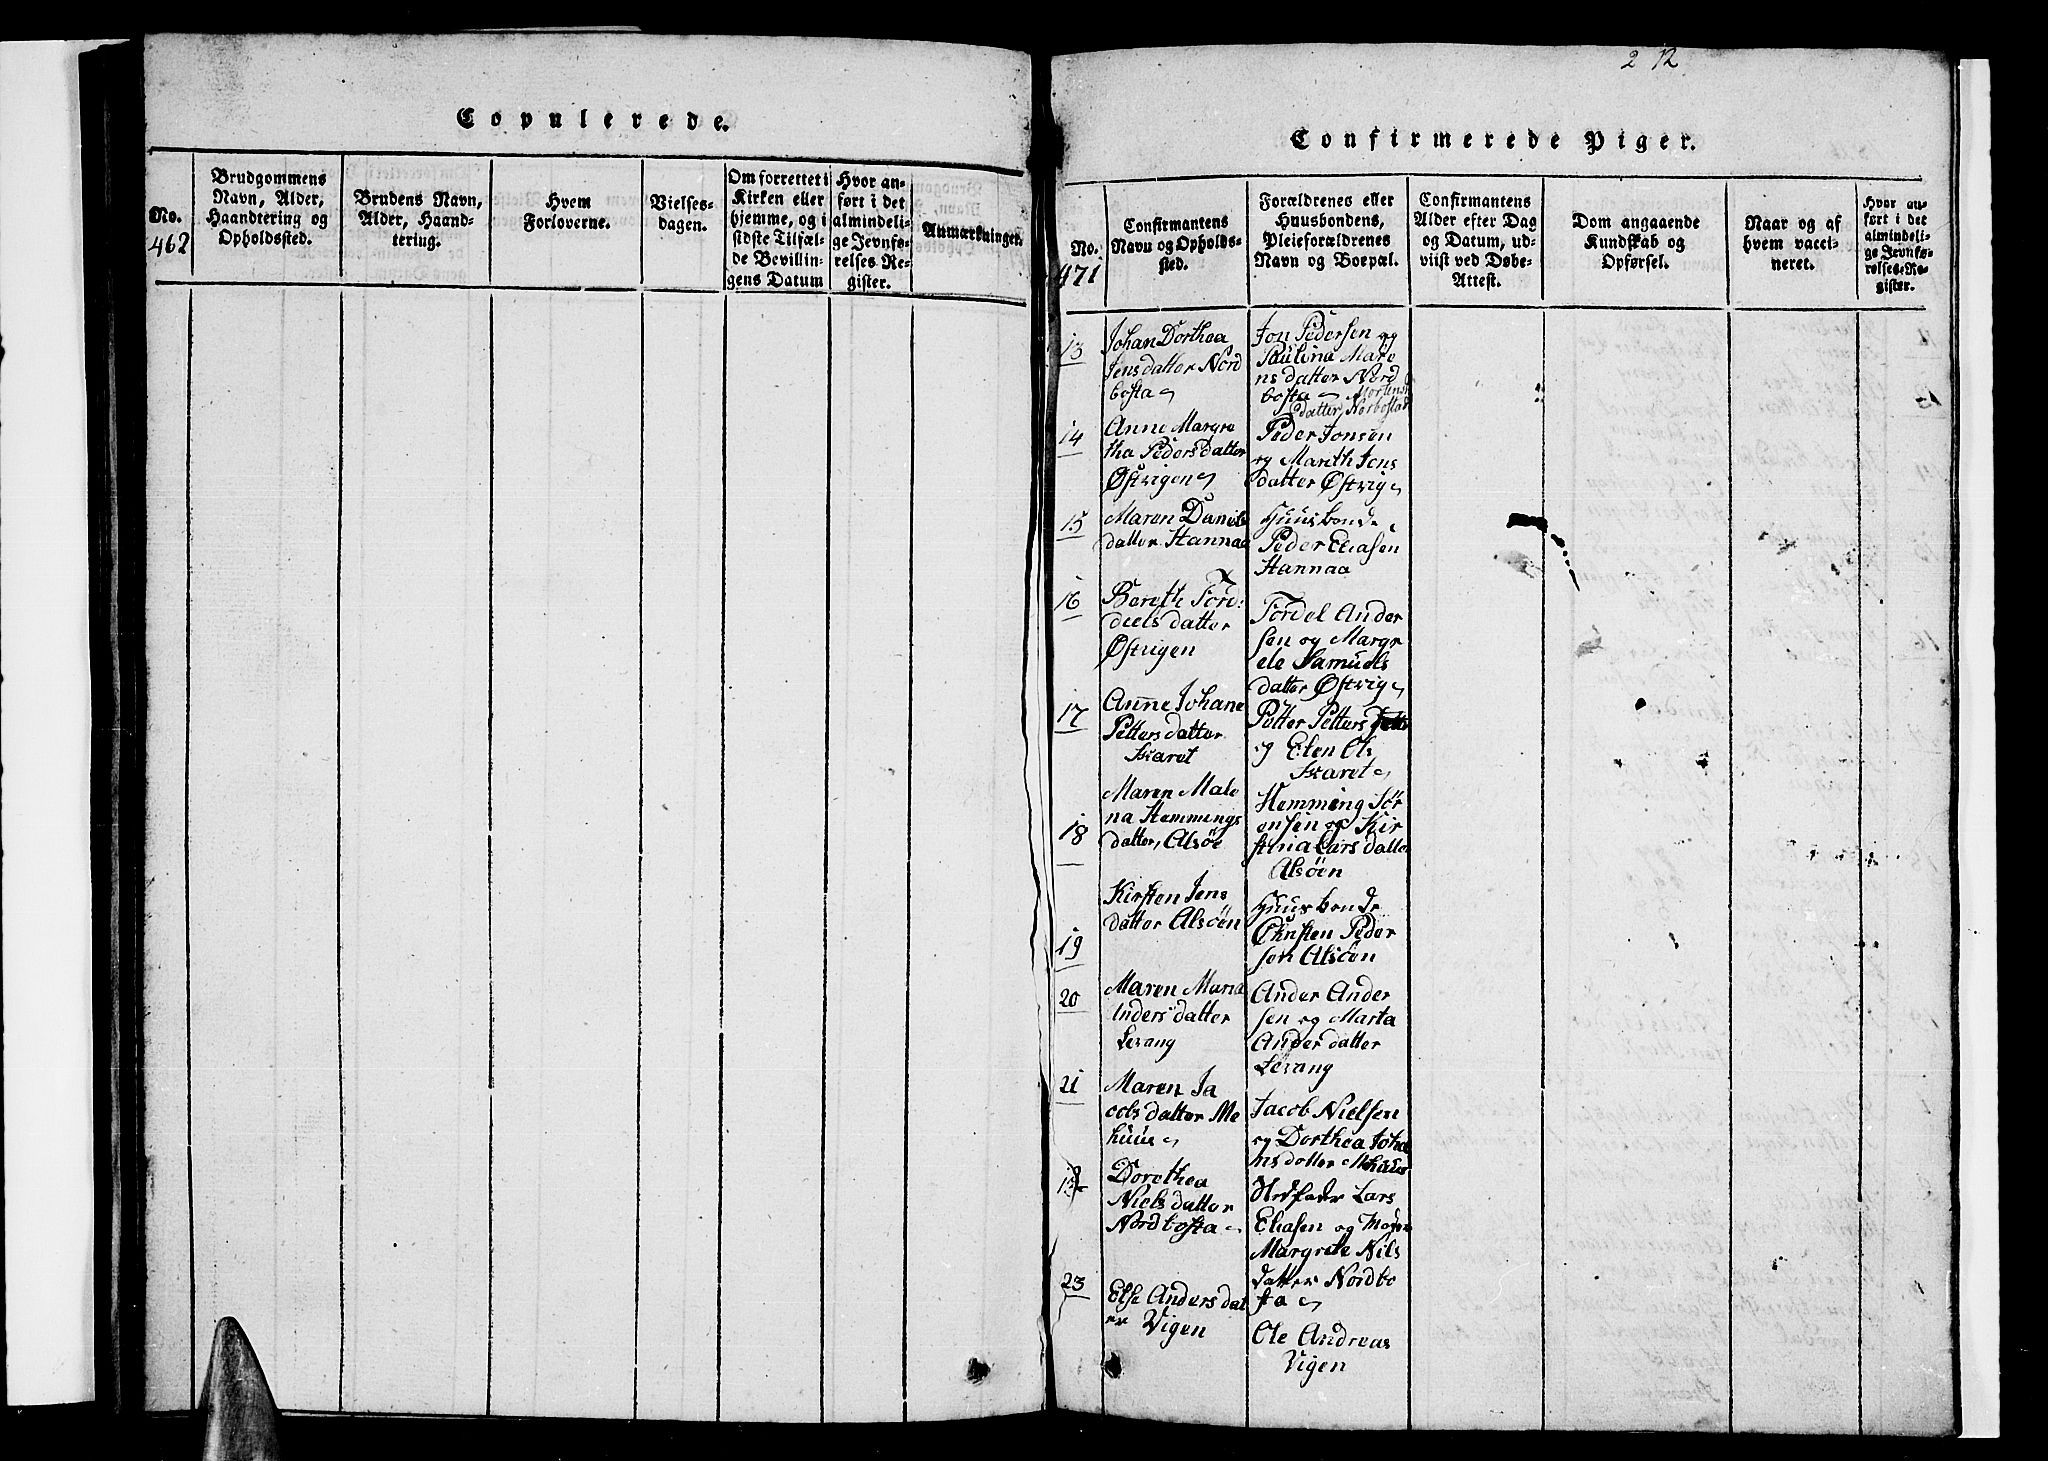 Copulerede.
No.
462
Brudgommens
Navn, Alder,
Haandtering og
Opholdssted.
Brudens Navn,
Alder, Haand-
tering.
Hvem
Forloverne.
Vielses-
dagen.
Om forrettet i
Kirken eller
hjemme, og i
sidste Tilfæl-
de Bevillin-
gens Datum
Hvor an-
ført i det
almindeli-
ge Jevnfø-
relses-Re-
gister.
Anmærkninger.
2 12
Confirmerede Piger.
No.
471
Confirmantens
Navn og Opholds-
sted.
Forældrenes eller
Huusbondens,
Pleieforældrenes
Navn og Boepæl.
Confirmantens
Alder efter Dag
og Datum, ud-
viist ved Døbe-
Attest.
Dom angaaende
Kundskab og
Opførsel.
Naar og af
hvem vacci-
neret.
Hvor an-
ført i det
almindeli-
ge Jevnfø-
relses-Re-
gister.
13
Johan Dorthea
Jensdatter Nord
bosta
Jon Pedersen og
Paulina Mare
nsdatter Nord
bosta Mortens
datter Norbosta
14
Anne Margre
tha Pedersdatter
Østvigen
Peder Jonsen
og Marith Jens
datter Østvig
15
Maren Daniels
datter Hannaa
Huusbonde
Peder Eliasen
Hannaa
16
Bereth Tord
deelsdatter
Østvigen
Tordel Ander
sen og Margr
ete Samuels
datter Østvig
17
Anne Johane
Pettersdatter
Skaret
Petter Petters
og Elen Ols
Skaret
18
Maren Male
na Hemmings
datter, Alsøe
Hemming Sør
ensen og Kir
stina Larsdatter
Alsøen
19
Kirsten Jens
datter Alsøen
Huusbonde
Christen Peder
sen Alsøen
20
Maren Maria
Andersdatter
Levang
Ander Ander
sen og Marta
Anderdatter
Levang
21
Maren Ja
cobsdatter Me
huus
Jacob Nielsen
og Dorthea Joha
nsdatter Mehuus
Dorethea
Nielsdatter
Nordbosta
Stedfader Lars
Eliasen og Moder
Margrete Nils
datter Nordbo
sta
23
Else Andersdat
er Vigen
Ole Andreas
Vigen